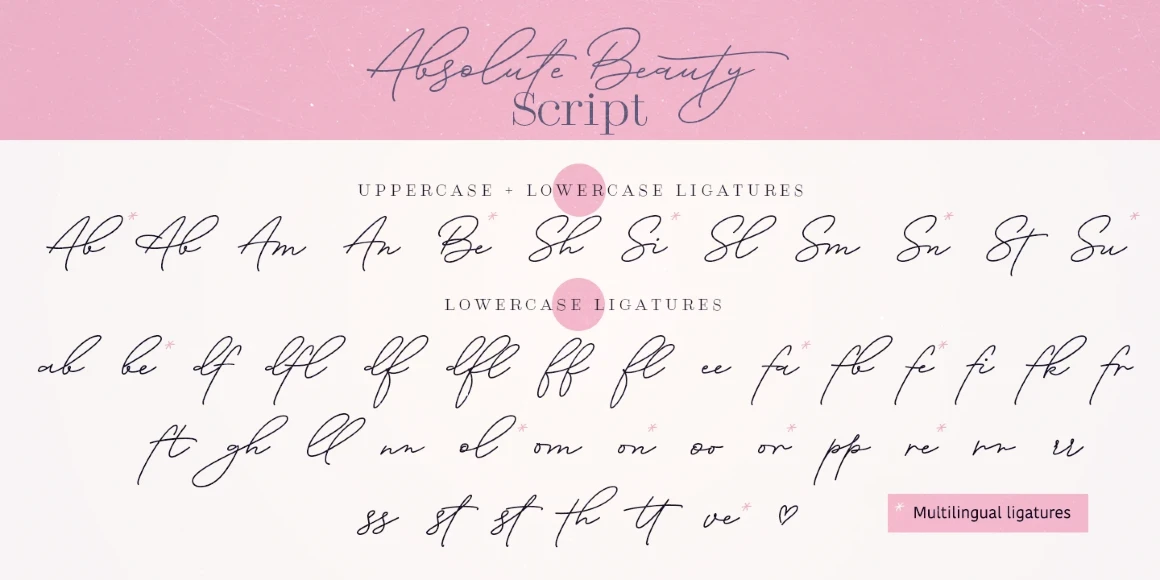 Absolute Beauty
Script
UPPERCASE + LOWERCASE LIGATURES
Ab* Ab Am An Be* Sh Si* Sl Sm Sn* St Su*
LOWERCASE LIGATURES
ab be* df dfl df dfl ff fl ee fa* fb fe* fi fk fr
ft gh ll nn ol* om on* oo or* pp re* rn rr
ss st st th tt ve* ♡
* Multilingual ligatures